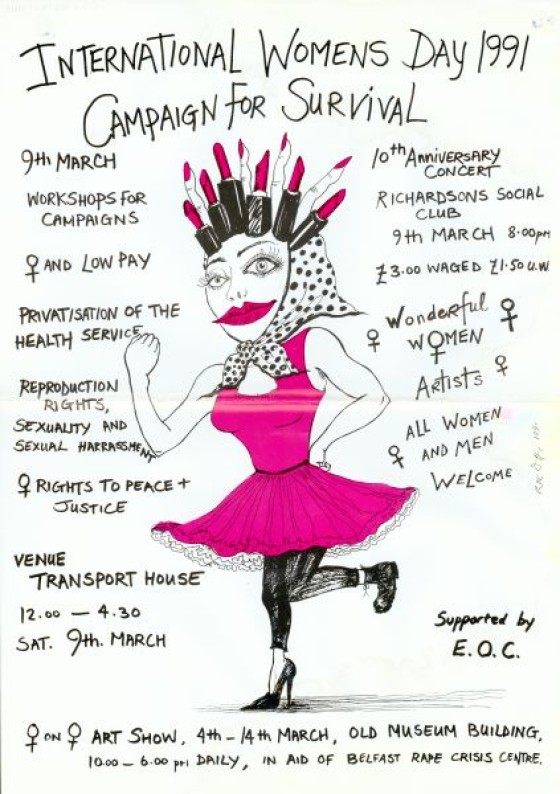 INTERNATIONAL WOMENS DAY 1991
CAMPAIGN FOR SURVIVAL
9th MARCH
WORKSHOPS FOR
CAMPAIGNS
♀ AND LOW PAY
PRIVATISATION OF THE
HEALTH SERVICE
REPRODUCTION
RIGHTS,
SEXUALITY AND
SEXUAL HARRASSMENT
♀ RIGHTS TO PEACE +
JUSTICE
VENUE
TRANSPORT HOUSE
12.00 — 4.30
SAT. 9th. MARCH
10th ANNIVERSARY
CONCERT
RICHARDSONS SOCIAL
CLUB
9th MARCH 8.00pm
£3.00 WAGED £1.50 U.W.
Wonderful ♀
♀ WOMEN
Artists ♀
ALL WOMEN
♀ AND MEN
WELCOME
Supported by
E.O.C.
♀ ON ♀ ART SHOW, 4th - 14th MARCH, OLD MUSEUM BUILDING,
10.00 - 6.00 pm DAILY, IN AID OF BELFAST RAPE CRISIS CENTRE.